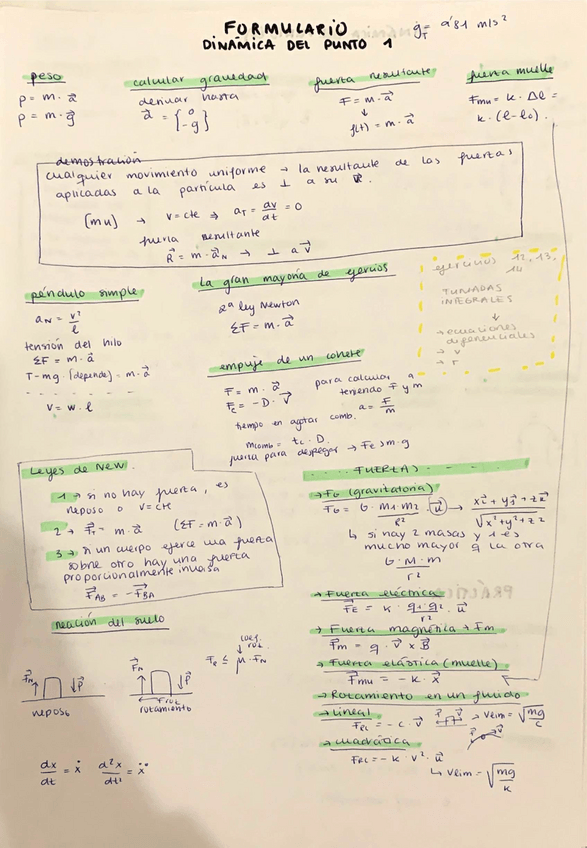 FORMULARIO
DINÁMICA DEL PUNTO 1
g_T = 9'81 m/s²
peso
P = m · a⃗
P = m · g⃗
calcular gravedad
derivar hasta
a⃗ = { 0
-g }
fuerza resultante
F = m · a⃗
↓
f(t) = m · a⃗
fuerza muelle
Fmu = k · Δl =
k · (l - l₀).
demostración
cualquier movimiento uniforme → la resultante de las fuerzas
aplicadas a la partícula es ⊥ a su v⃗.
[mu] → v = cte ⇒ a_T = dv/dt = 0
fuerza resultante
R⃗ = m · a⃗_N → ⊥ a v⃗
péndulo simple
a_N = v²/l
tensión del hilo
ΣF = m · a⃗
T - mg · (depende) = m · a⃗
- - - - - - -
v = w · l
la gran mayoría de ejercios
2ª ley Newton
ΣF = m · a⃗
ejercicios 12, 13,
14
TUNADAS
INTEGRALES
↓
→ ecuaciones
diferenciales
→ v
→ r
empuje de un cohete
F = m · a⃗
F_c = -D · v⃗
para calcular a
teniendo F y m
a = F/m
tiempo en agotar comb.
m_comb = t_c · D.
fuerza para despegar → F_e > m · g
Leyes de New.
1 → si no hay fuerza, es
reposo o v = cte
2 → F⃗_T = m · a⃗ (ΣF = m · a⃗)
3 → si un cuerpo ejerce una fuerza
sobre otro hay una fuerza
proporcionalmente inversa
F⃗_AB = -F⃗_BA
FUERZAS
→ F_G (gravitatoria)
F_G = G · m1 · m2 / R² · u⃗ → xi⃗ + yj⃗ + zk⃗ / √x² + y² + z²
↳ si hay 2 masas y 1 es
mucho mayor q la otra
G · M · m / r²
→ Fuerza eléctrica
F⃗_E = k · q1 · q2 / r² · u⃗
→ Fuerza magnética → Fm
F⃗m = q · v⃗ x B⃗
→ Fuerza elástica (muelle)
F⃗mu = -k · x⃗
→ Rozamiento en un fluido
→ Lineal
F_RL = -c · v⃗ F⃗ v⃗ → v lim = √mg/c
→ cuadrática
F_RC = -k · v² · u⃗
↳ v lim = √mg/k
reación del suelo
F⃗_N P⃗
reposo
F⃗_N P⃗
F roz
rozamiento
coef.
roz
↓
F_R ≤ μ · F_N
dx/dt = ẋ d²x/dt² = ẍ